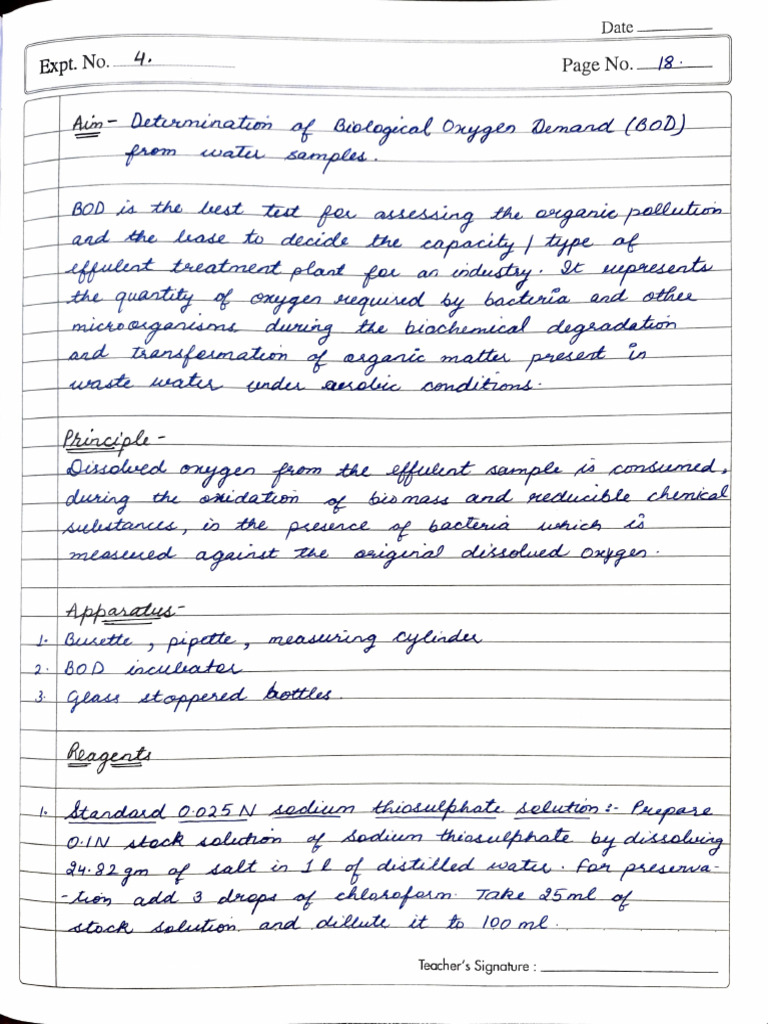 Date
Expt. No. 4.
Page No. 18.
Aim - Determination of Biological Oxygen Demand (BOD)
from water samples.
BOD is the best test for assessing the organic pollution
and the base to decide the capacity / type of
effulent treatment plant for an industry. It represents
the quantity of oxygen required by bacteria and other
microorganisms during the biochemical degradation
and transformation of organic matter present in
waste water under aerobic conditions.
Principle -
Dissolved oxygen from the effulent sample is consumed,
during the oxidation of biomass and reducible chemical
substances, in the presence of bacteria which is
measured against the original dissolved oxygen.
Apparatus -
1. Burette, pipette, measuring cylinder
2. BOD incubator
3. Glass stoppered bottles.
Reagents
1. Standard 0.025 N sodium thiosulphate solution :- Prepare
0.1N stock solution of sodium thiosulphate by dissolving
24.82 gm of salt in 1 l of distilled water. For preserva-
-tion add 3 drops of chloroform. Take 25ml of
stock solution and dillute it to 100 ml.
Teacher's Signature :